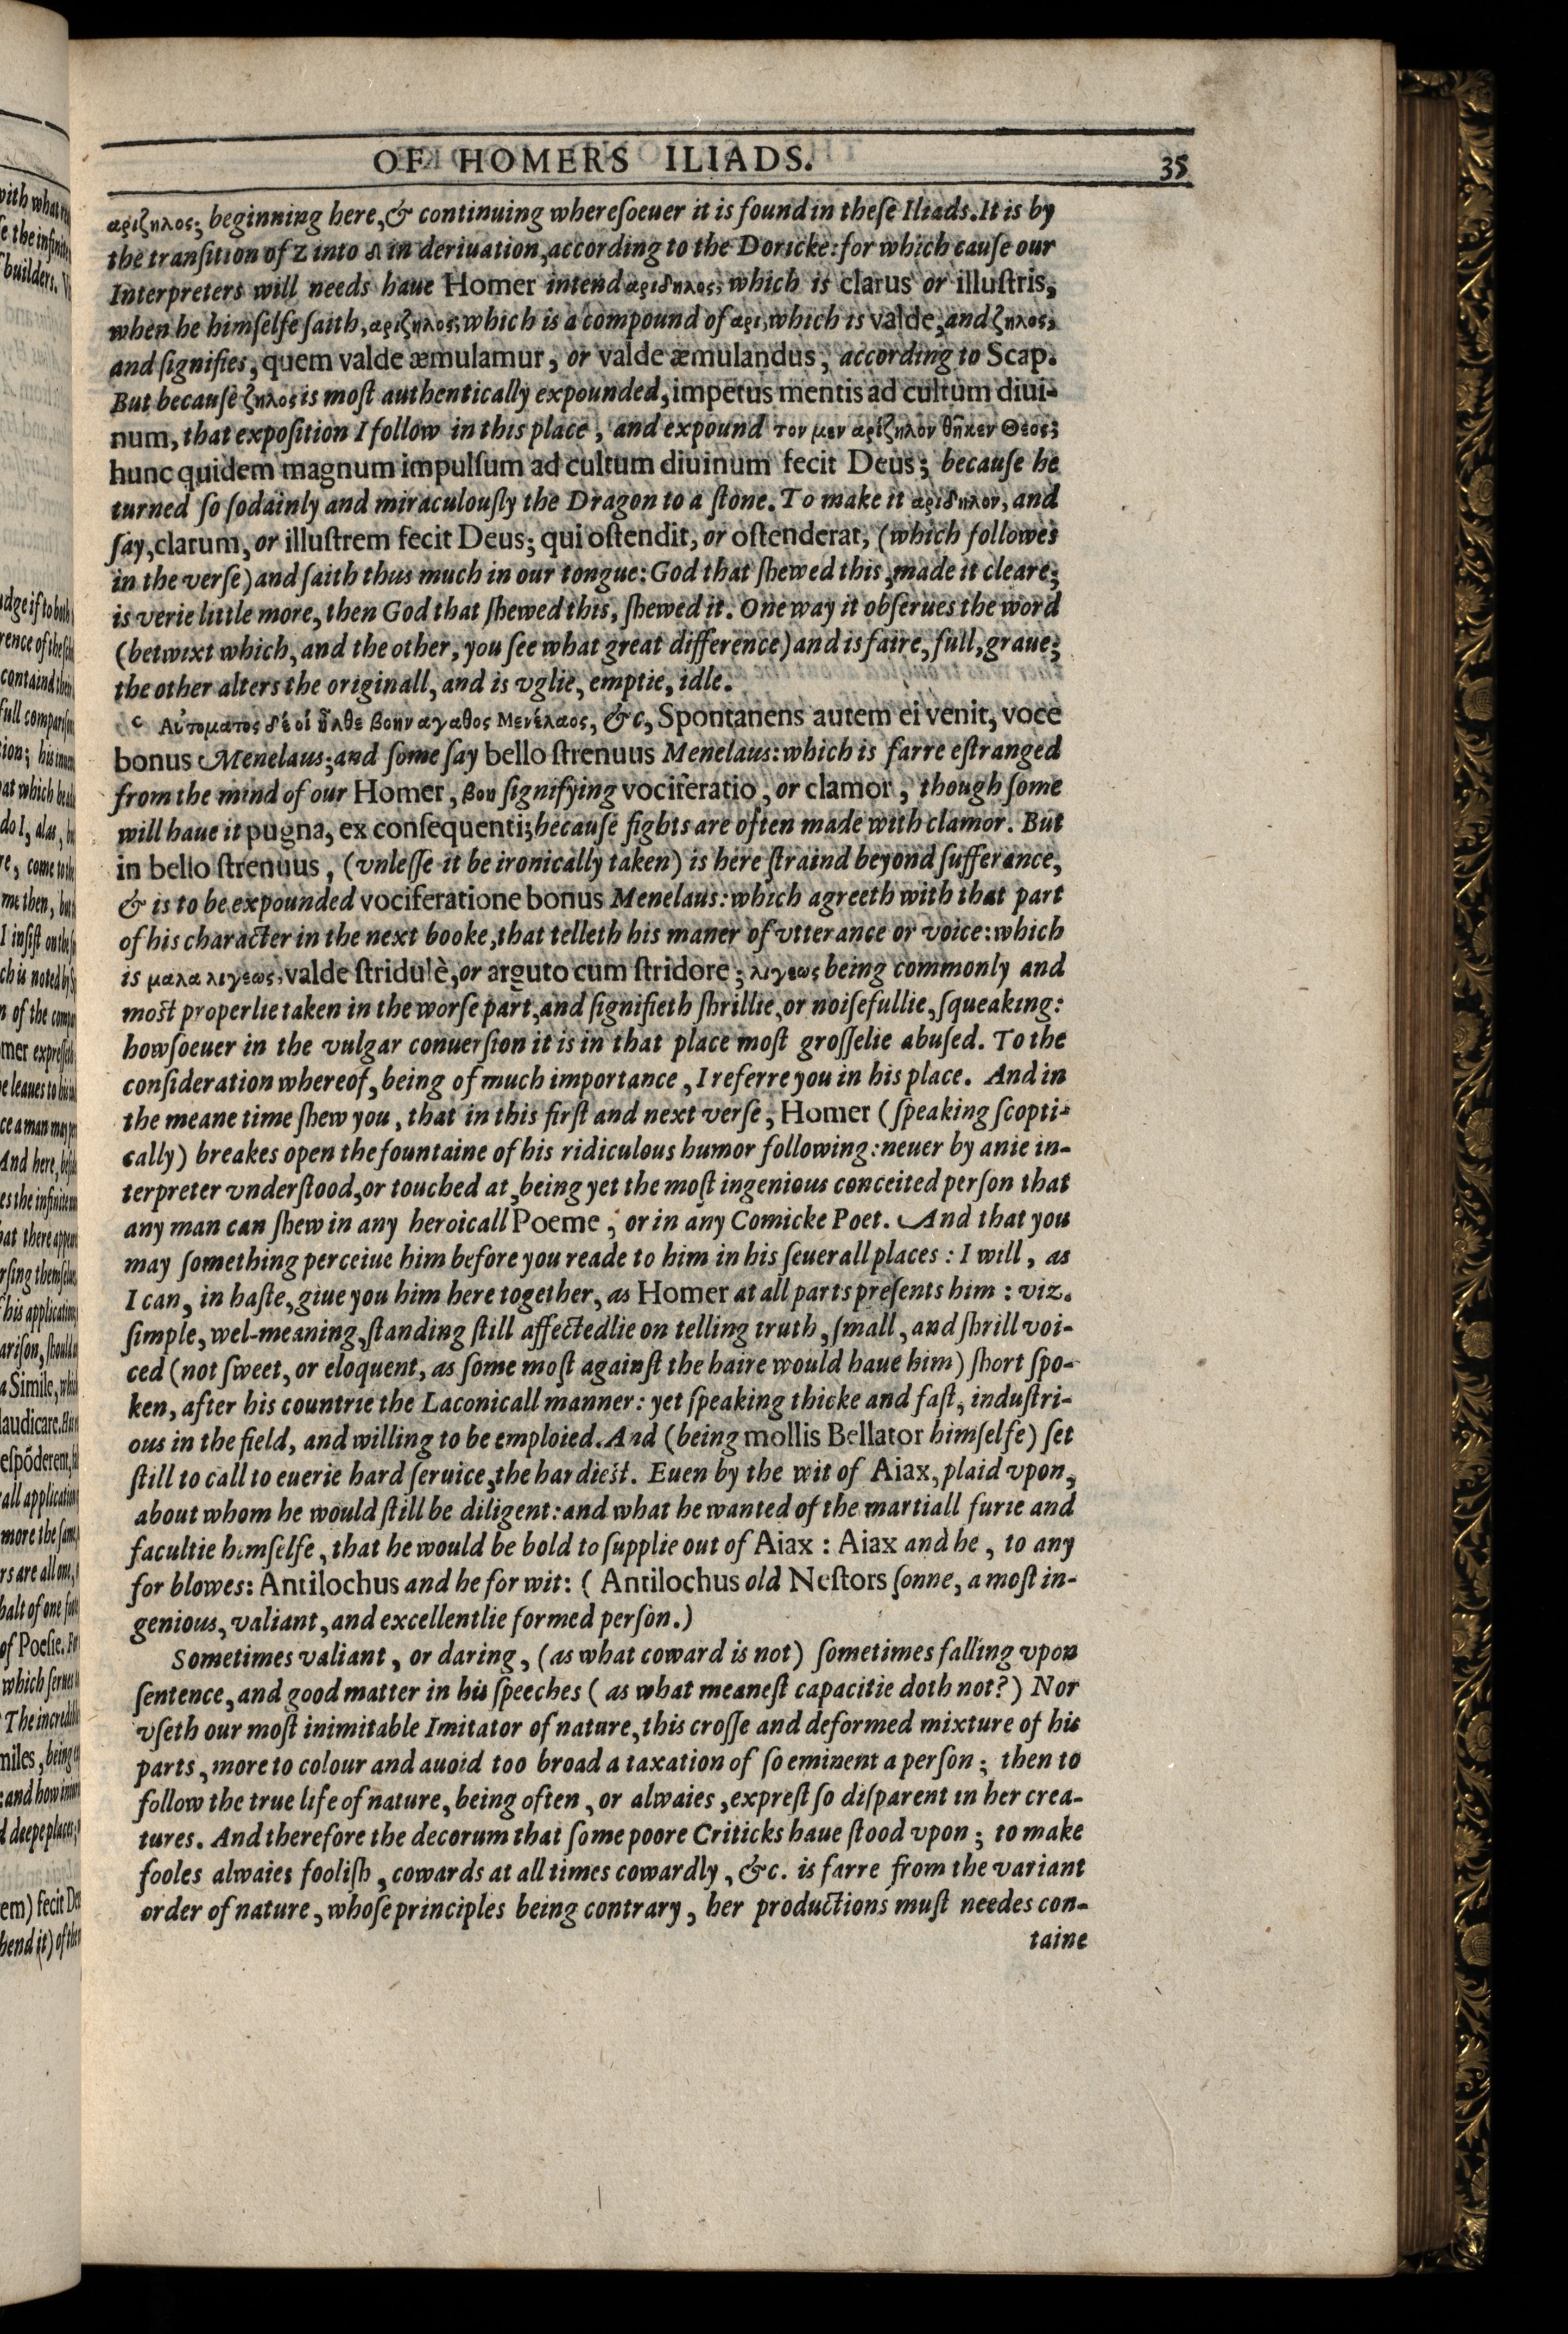 OF HOMERS ILIADS. 35
αριζηλος; beginning here, & continuing whereſoeuer it is found in theſe Iliads. It is by
the tranſition of Z into Δ in deriuation, according to the Doricke: for which cauſe our
Interpreters will needs haue Homer intend αριδηλος; which is clarus or illuſtris,
when he himſelfe ſaith, αριζηλος; which is a compound of αρι, which is valde, and ζηλος;
and ſignifies, quem valde æmulamur, or valde æmulandus, according to Scap.
But becauſe ζηλος is moſt authentically expounded, impetus mentis ad cultum diui-
num, that expoſition I follow in this place, and expound τον μεν αρίζηλον θῆκεν Θεος;
hunc quidem magnum impulſum ad cultum diuinum fecit Deus; becauſe he
turned ſo ſodainly and miraculouſly the Dragon to a ſtone. To make it αριδηλον, and
ſay, clarum, or illuſtrem fecit Deus; qui oſtendit, or oſtenderat, (which followes
in the verſe) and ſaith thus much in our tongue: God that ſhewed this, made it cleare;
is verie little more, then God that ſhewed this, ſhewed it. One way it obſerues the word
(betwixt which, and the other, you ſee what great difference) and is faire, full, graue;
the other alters the originall, and is vglie, emptie, idle.
c Αὐτοματος δέ οἱ ἦλθε βοην αγαθος Μενέλαος, &c, Spontanens autem ei venit, voce
bonus Menelaus; and ſome ſay bello ſtrenuus Menelaus: which is farre eſtranged
from the mind of our Homer, βοη ſignifying vociferatio, or clamor, though ſome
will haue it pugna, ex conſequenti; becauſe fights are often made with clamor. But
in bello ſtrenuus, (vnleſſe it be ironically taken) is here ſtraind beyond ſufferance,
& is to be expounded vociferatione bonus Menelaus: which agreeth with that part
of his character in the next booke, that telleth his maner of vtterance or voice: which
is μαλα λιγεως, valde ſtridulè, or arguto cum ſtridore; λιγεως being commonly and
moſt properlie taken in the worſe part, and ſignifieth ſhrillie, or noiſefullie, ſqueaking:
howſoeuer in the vulgar conuerſion it is in that place moſt groſſelie abuſed. To the
conſideration whereof, being of much importance, I referre you in his place. And in
the meane time ſhew you, that in this firſt and next verſe, Homer (ſpeaking ſcopti-
cally) breakes open the fountaine of his ridiculous humor following: neuer by anie in-
terpreter vnderſtood, or touched at, being yet the moſt ingenious conceited perſon that
any man can ſhew in any heroicall Poeme, or in any Comicke Poet. And that you
may ſomething perceiue him before you reade to him in his ſeuerall places: I will, as
I can, in haſte, giue you him here together, as Homer at all parts preſents him: viz.
ſimple, wel-meaning, ſtanding ſtill affectedlie on telling truth, ſmall, and ſhrill voi-
ced (not ſweet, or eloquent, as ſome moſt againſt the haire would haue him) ſhort ſpo-
ken, after his countrie the Laconicall manner: yet ſpeaking thicke and faſt, induſtri-
ous in the field, and willing to be emploied. And (being mollis Bellator himſelfe) ſet
ſtill to call to euerie hard ſeruice, the hardieſt. Euen by the wit of Aiax, plaid vpon,
about whom he would ſtill be diligent: and what he wanted of the martiall furie and
facultie himſelfe, that he would be bold to ſupplie out of Aiax: Aiax and he, to any
for blowes: Antilochus and he for wit: (Antilochus old Neſtors ſonne, a moſt in-
genious, valiant, and excellentlie formed perſon.)
Sometimes valiant, or daring, (as what coward is not) ſometimes falling vpon
ſentence, and good matter in his ſpeeches (as what meaneſt capacitie doth not?) Nor
vſeth our moſt inimitable Imitator of nature, this croſſe and deformed mixture of his
parts, more to colour and auoid too broad a taxation of ſo eminent a perſon; then to
follow the true life of nature, being often, or alwaies, expreſt ſo diſparent in her crea-
tures. And therefore the decorum that ſome poore Criticks haue ſtood vpon; to make
fooles alwaies fooliſh, cowards at all times cowardly, &c. is farre from the variant
order of nature, whoſe principles being contrary, her productions muſt needes con-
taine